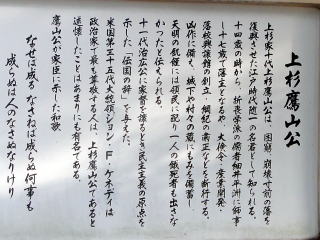 上杉鷹山公
上杉家十代上杉鷹山公は、困窮、崩壊寸前の藩を
復興させた江戸時代随一の名君として知られる。
十四歳の時から、折衷学派の儒者細井平洲に師事
し十七歳で藩主となるや、大倹令・産業開発・
藩校興譲館の創立、綱紀の粛正などを断行する。
凶作に備え、城下や村々の蔵にもみを備蓄し
天明の飢饉には領民に配り一人の餓死者も出さな
かったと伝えられる。
十一代治広公に家督を譲るとき民主主義の原点を
示した「伝国の辞」を与えた。
米国第三十五代大統領ジョン・F・ケネディは
政治家で最も尊敬する人は、上杉鷹山公であると
述懐したことはあまりにも有名である。
鷹山公が家臣に示した和歌
なせば成る なさねば成らぬ 何事も
成らぬは人の なさぬなりけり